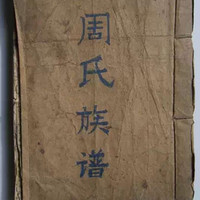 周氏族谱